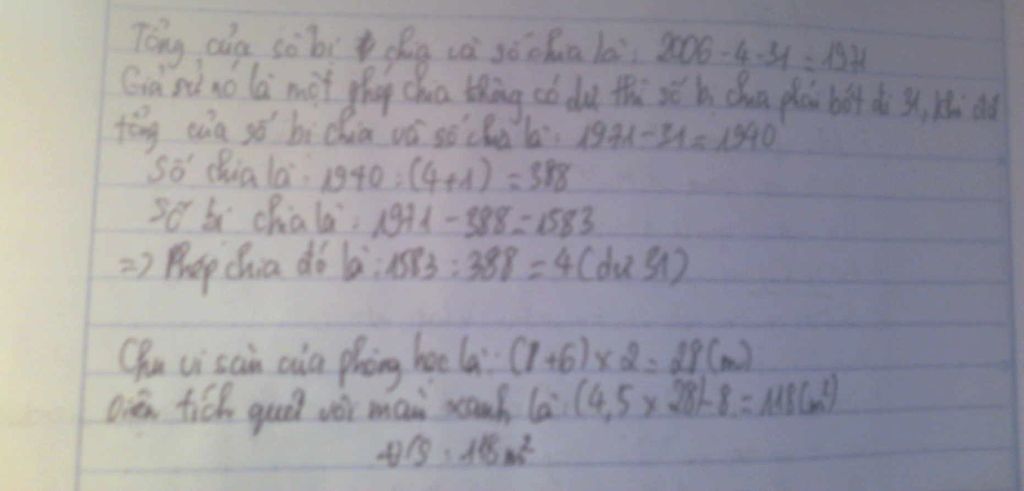 Tổng của số bị chia và số chia là: 2006 - 4 - 31 = 1971
Giả sử nó là một phép chia không có dư thì số bị chia phải bớt đi 31, khi đó
tổng của số bị chia và số chia là: 1971 - 31 = 1940
Số chia là: 1940 : (4+1) = 388
Số bị chia là: 1971 - 388 = 1583
=> Phép chia đó là: 1583 : 388 = 4 (dư 31)
Chu vi sàn của phòng học là: (8+6) x 2 = 28 (m)
Diện tích quét vôi màu xanh là: (4,5 x 28) - 8 = 118 (m²)
Đ/S: 118 m²